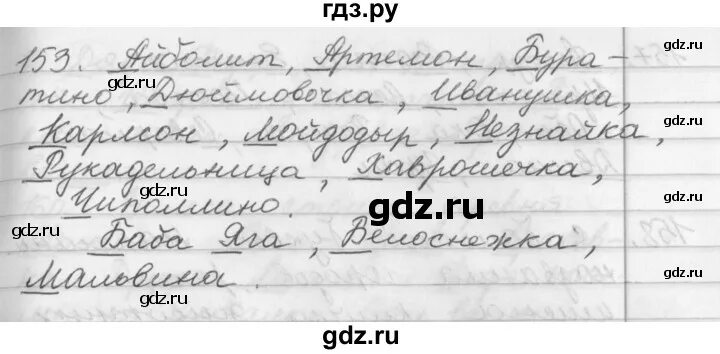 гдз.ру
153. Айболит, Артемон, Бура-
тино, Дюймовочка, Иванушка,
Карлсон, Мойдодыр, Незнайка,
Рукадельница, Хаврошечка,
Чиполлино.
Баба Яга, Белоснежка,
Мальвина.
gdz.ru
gdz.ru
gdz.ru
gdz.ru
gdz.ru
gdz.ru
gdz.ru
gdz.ru
gdz.ru
gdz.ru
gdz.ru
gdz.ru
gdz.ru